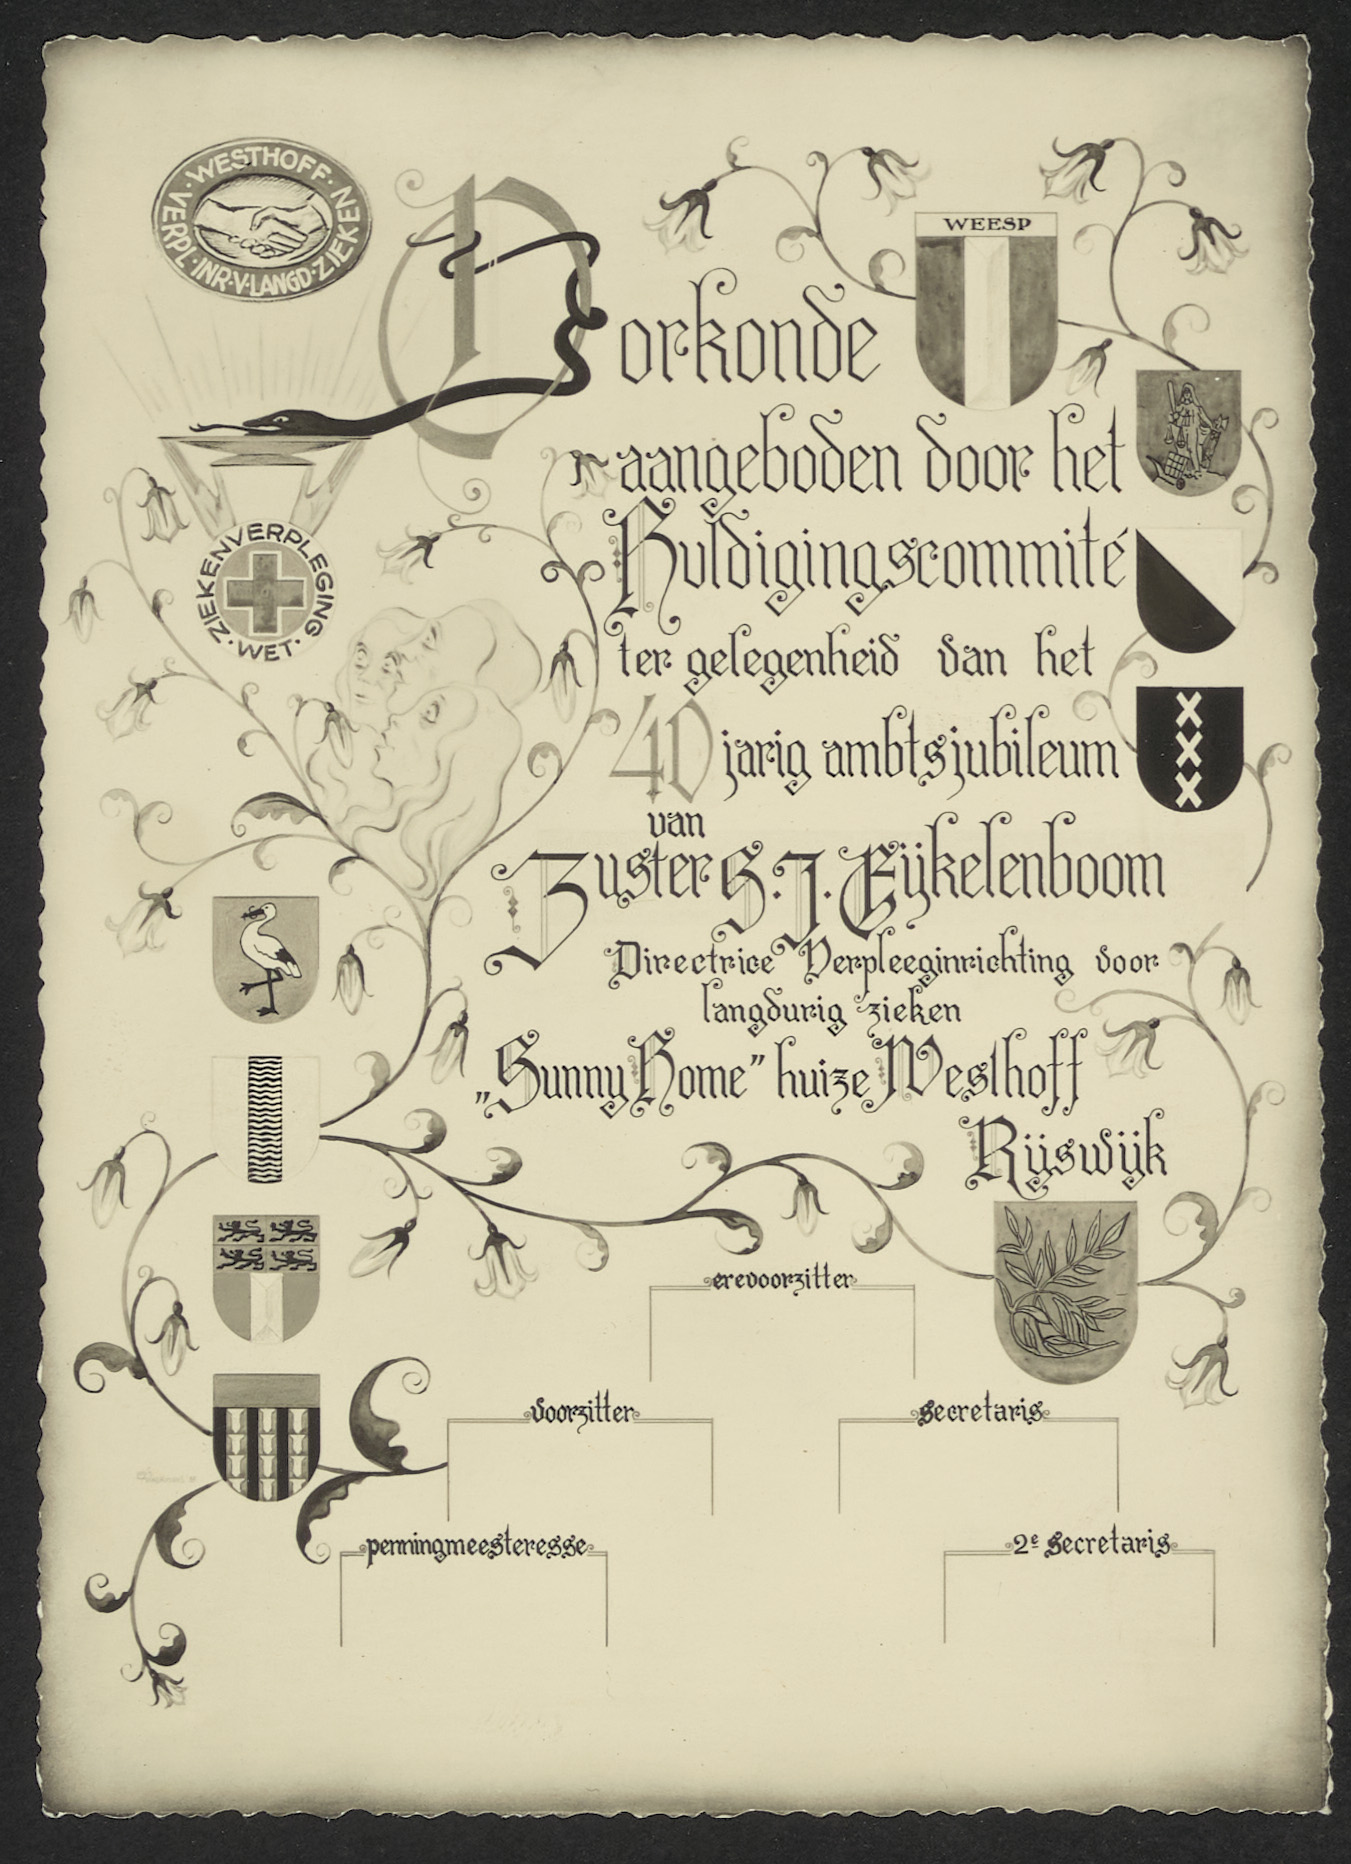 WESTHOFF · VERPL · INR · V · LANGD · ZIEKEN
WEESP
Oorkonde
aangeboden door het
Huldigingscommité
ZIEKENVERPLEGING · WET ·
ter gelegenheid van het
40 jarig ambtsjubileum
van
Zuster S. J. Eijkelenboom
Directrice Verpleeginrichting voor
langdurig zieken
„Sunny Home” huize Westhoff
Rijswijk
erevoorzitter
voorzitter
secretaris
penningmeesteresse
2e secretaris